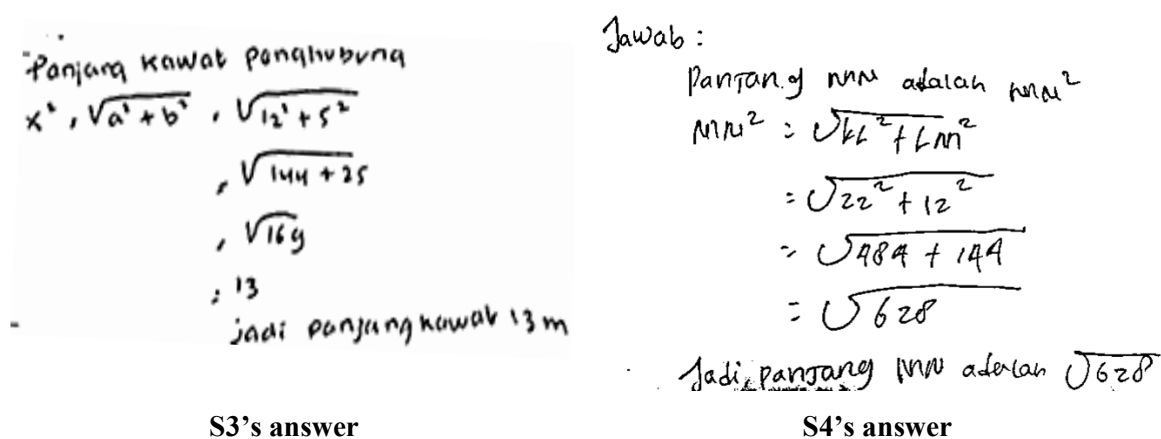 Panjang kawat penghubung
x², √a² + b², √12² + 5²
, √144 + 25
, √169
: 13
jadi panjang kawat 13 m
S3’s answer
Jawab :
Panjang MN adalah MN²
MN² = √KL² + LM²
= √22² + 12²
= √484 + 144
= √628
Jadi, panjang MN adalah √628
S4’s answer